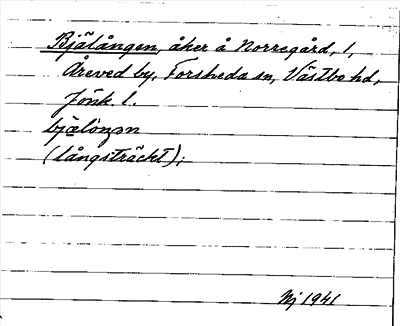 Bjälången, åker å Norregård, 1,
Åreved by, Forsheda sn, Västbo hd,
Jönk. l.
bjälåŋən
(långsträckt);
Nj 1941